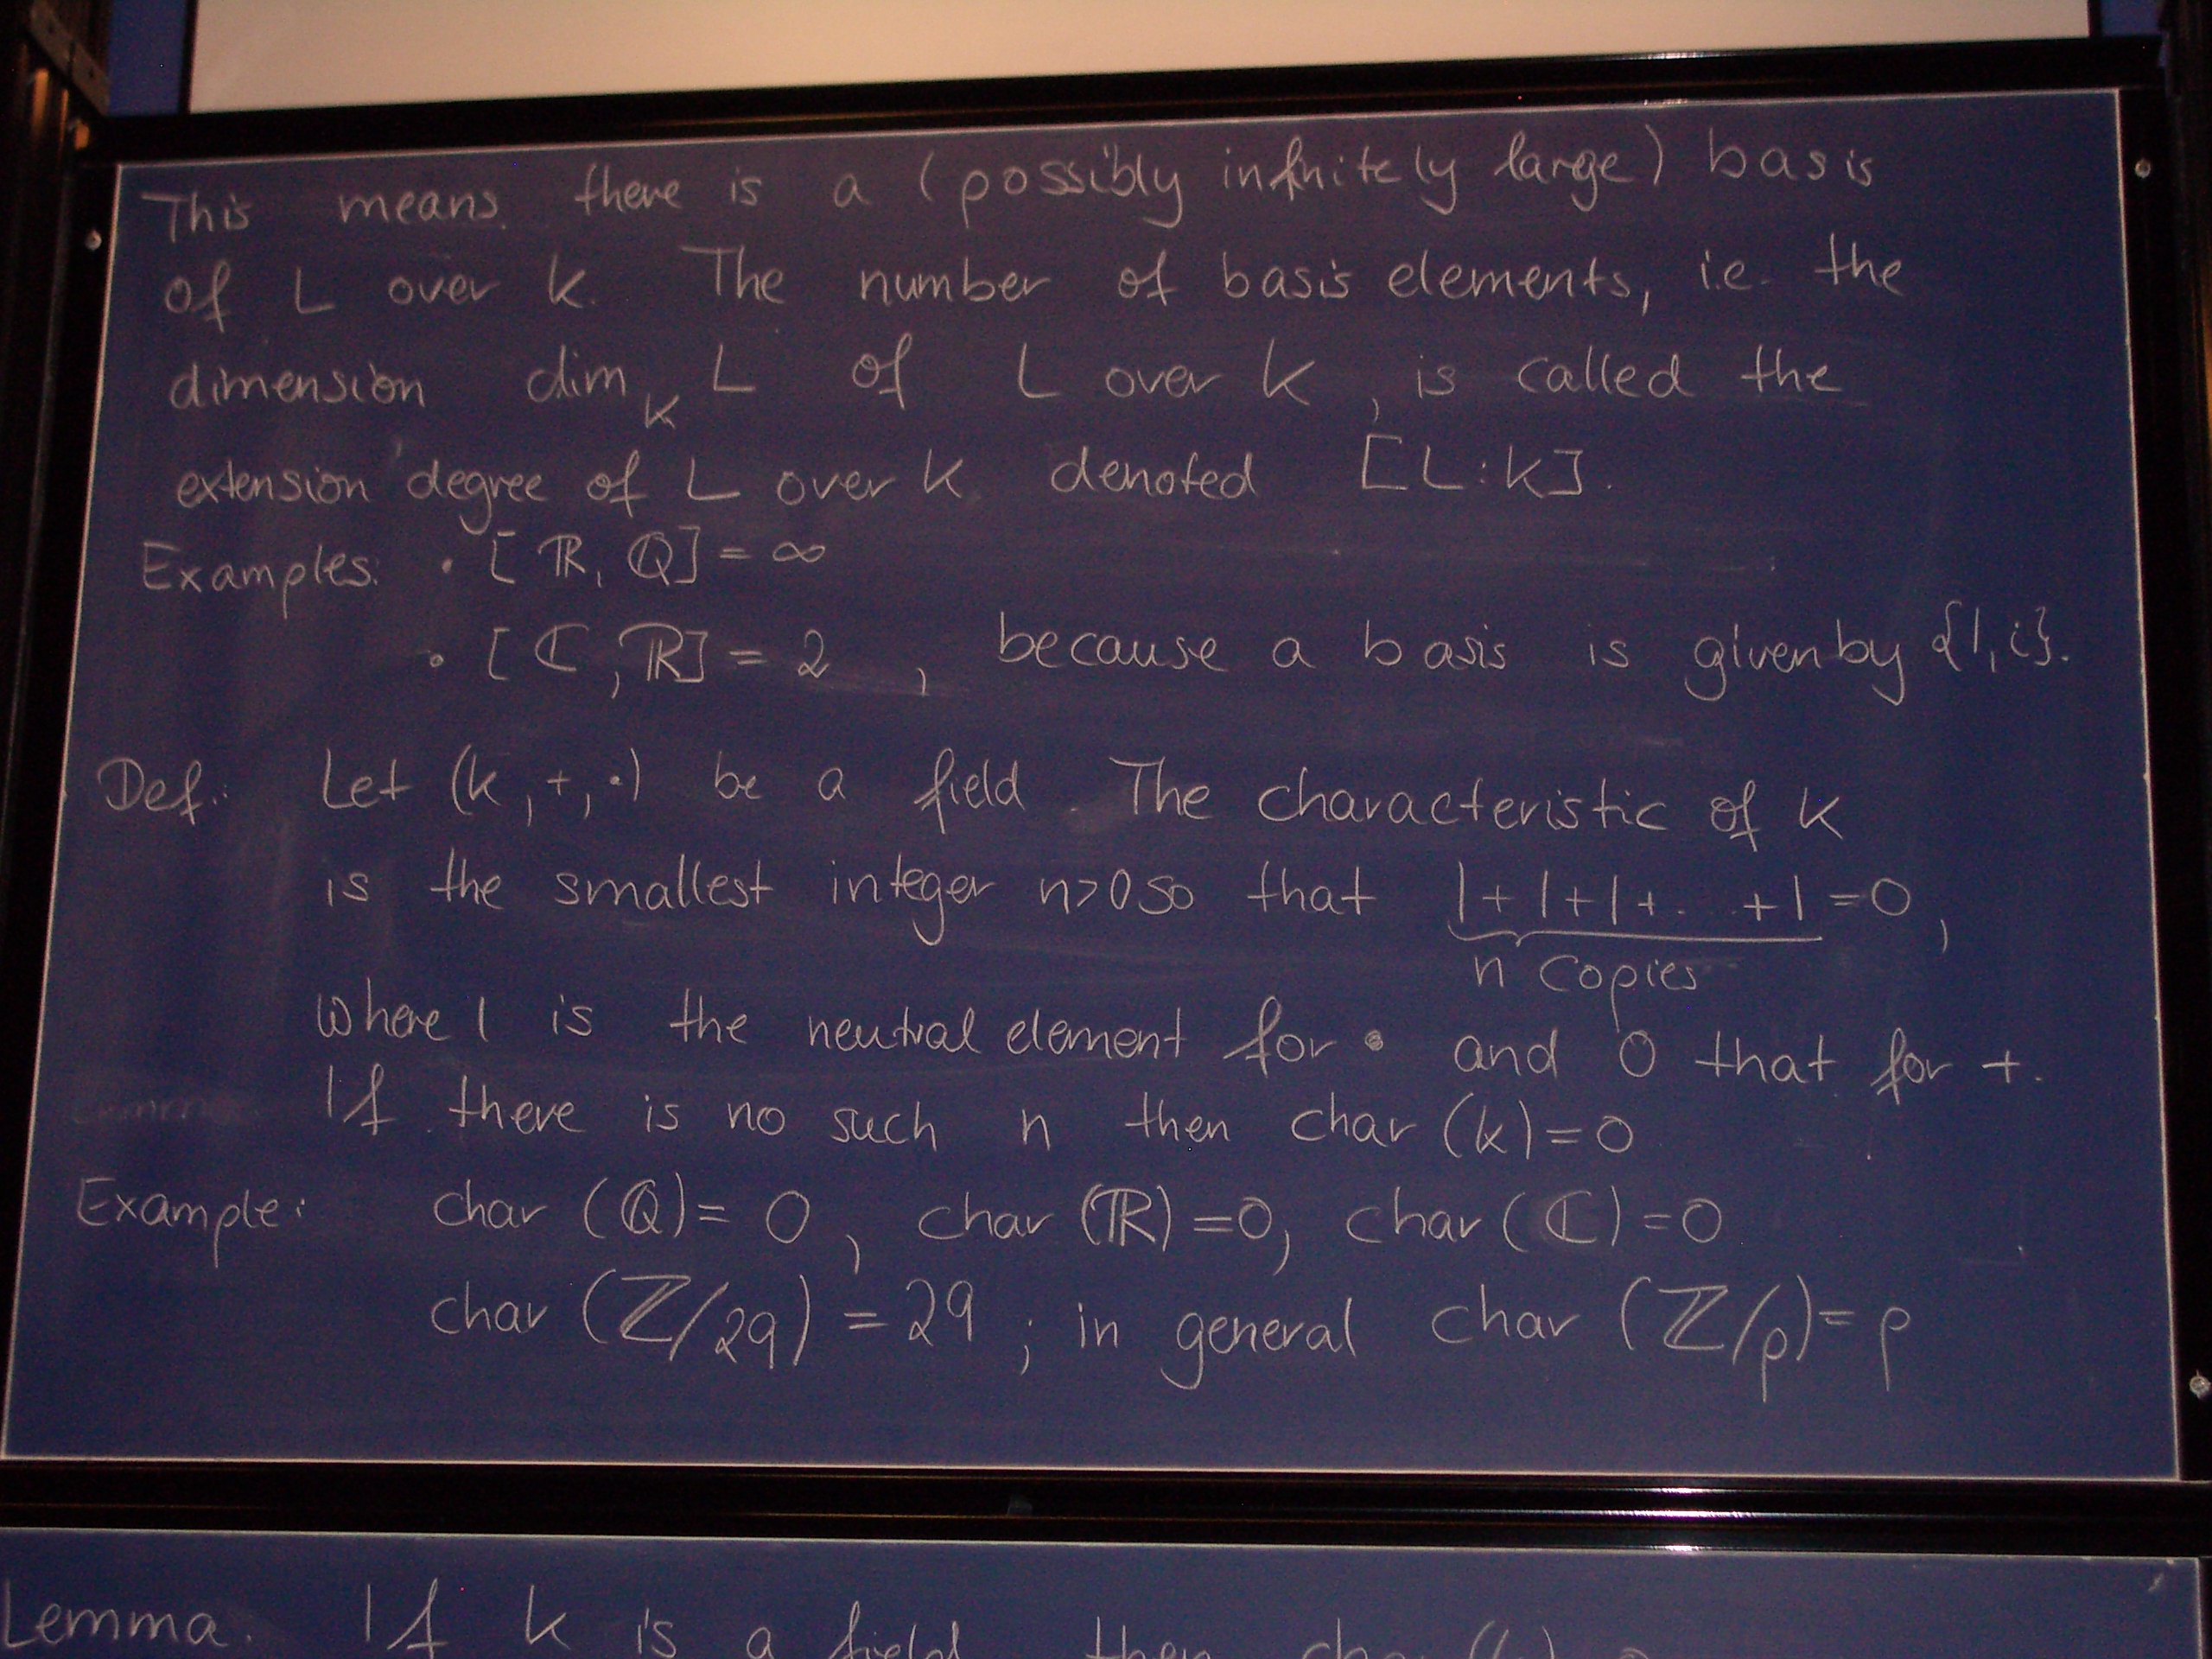 This means there is a (possibly infinitely large) basis
of L over k. The number of basis elements, i.e. the
dimension dim_K L of L over k, is called the
extension degree of L over k denoted [L:k].
Examples: • [ℝ, ℚ] = ∞
• [ℂ, ℝ] = 2, because a basis is given by {1, i}.
Def.: Let (k, +, •) be a field. The characteristic of k
is the smallest integer n>0 so that 1+1+1+. .. +1 = 0,
n copies
where 1 is the neutral element for • and 0 that for +.
If there is no such n then char (k) = 0
Example: char (ℚ) = 0, char (ℝ) = 0, char (ℂ) = 0
char (ℤ/29) = 29 ; in general char (ℤ/p) = p
Lemma. If k is a field then char (k)